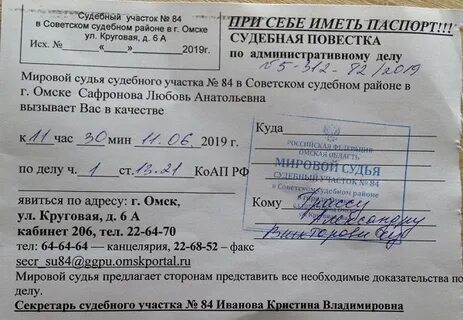 Судебный участок № 84
в Советском судебном районе в г. Омске
ул. Круговая, д. 6 А
Исх. № «__» 2019г.
ПРИ СЕБЕ ИМЕТЬ ПАСПОРТ!!!
СУДЕБНАЯ ПОВЕСТКА
по административному делу
№ 5-312-82/2019
Мировой судья судебного участка № 84 в Советском судебном районе в
г. Омске Сафронова Любовь Анатольевна
вызывает Вас в качестве
к 11 час 30 мин 11.06 2019 г.
по делу ч. 1 ст. 13.21 КоАП РФ
Куда
РОССИЙСКАЯ ФЕДЕРАЦИЯ
ОМСКАЯ ОБЛАСТЬ
МИРОВОЙ СУДЬЯ
СУДЕБНЫЙ УЧАСТОК № 84
в Советском судебном районе
Кому
Александру
Викторовичу
явиться по адресу: г. Омск,
ул. Круговая, д. 6 А
кабинет 206, тел. 22-64-70
тел: 64-64-64 — канцелярия, 22-68-52 – факс
secr_su84@ggpu.omskportal.ru
Мировой судья предлагает сторонам представить все необходимые доказательства по
делу.
Секретарь судебного участка № 84 Иванова Кристина Владимировна